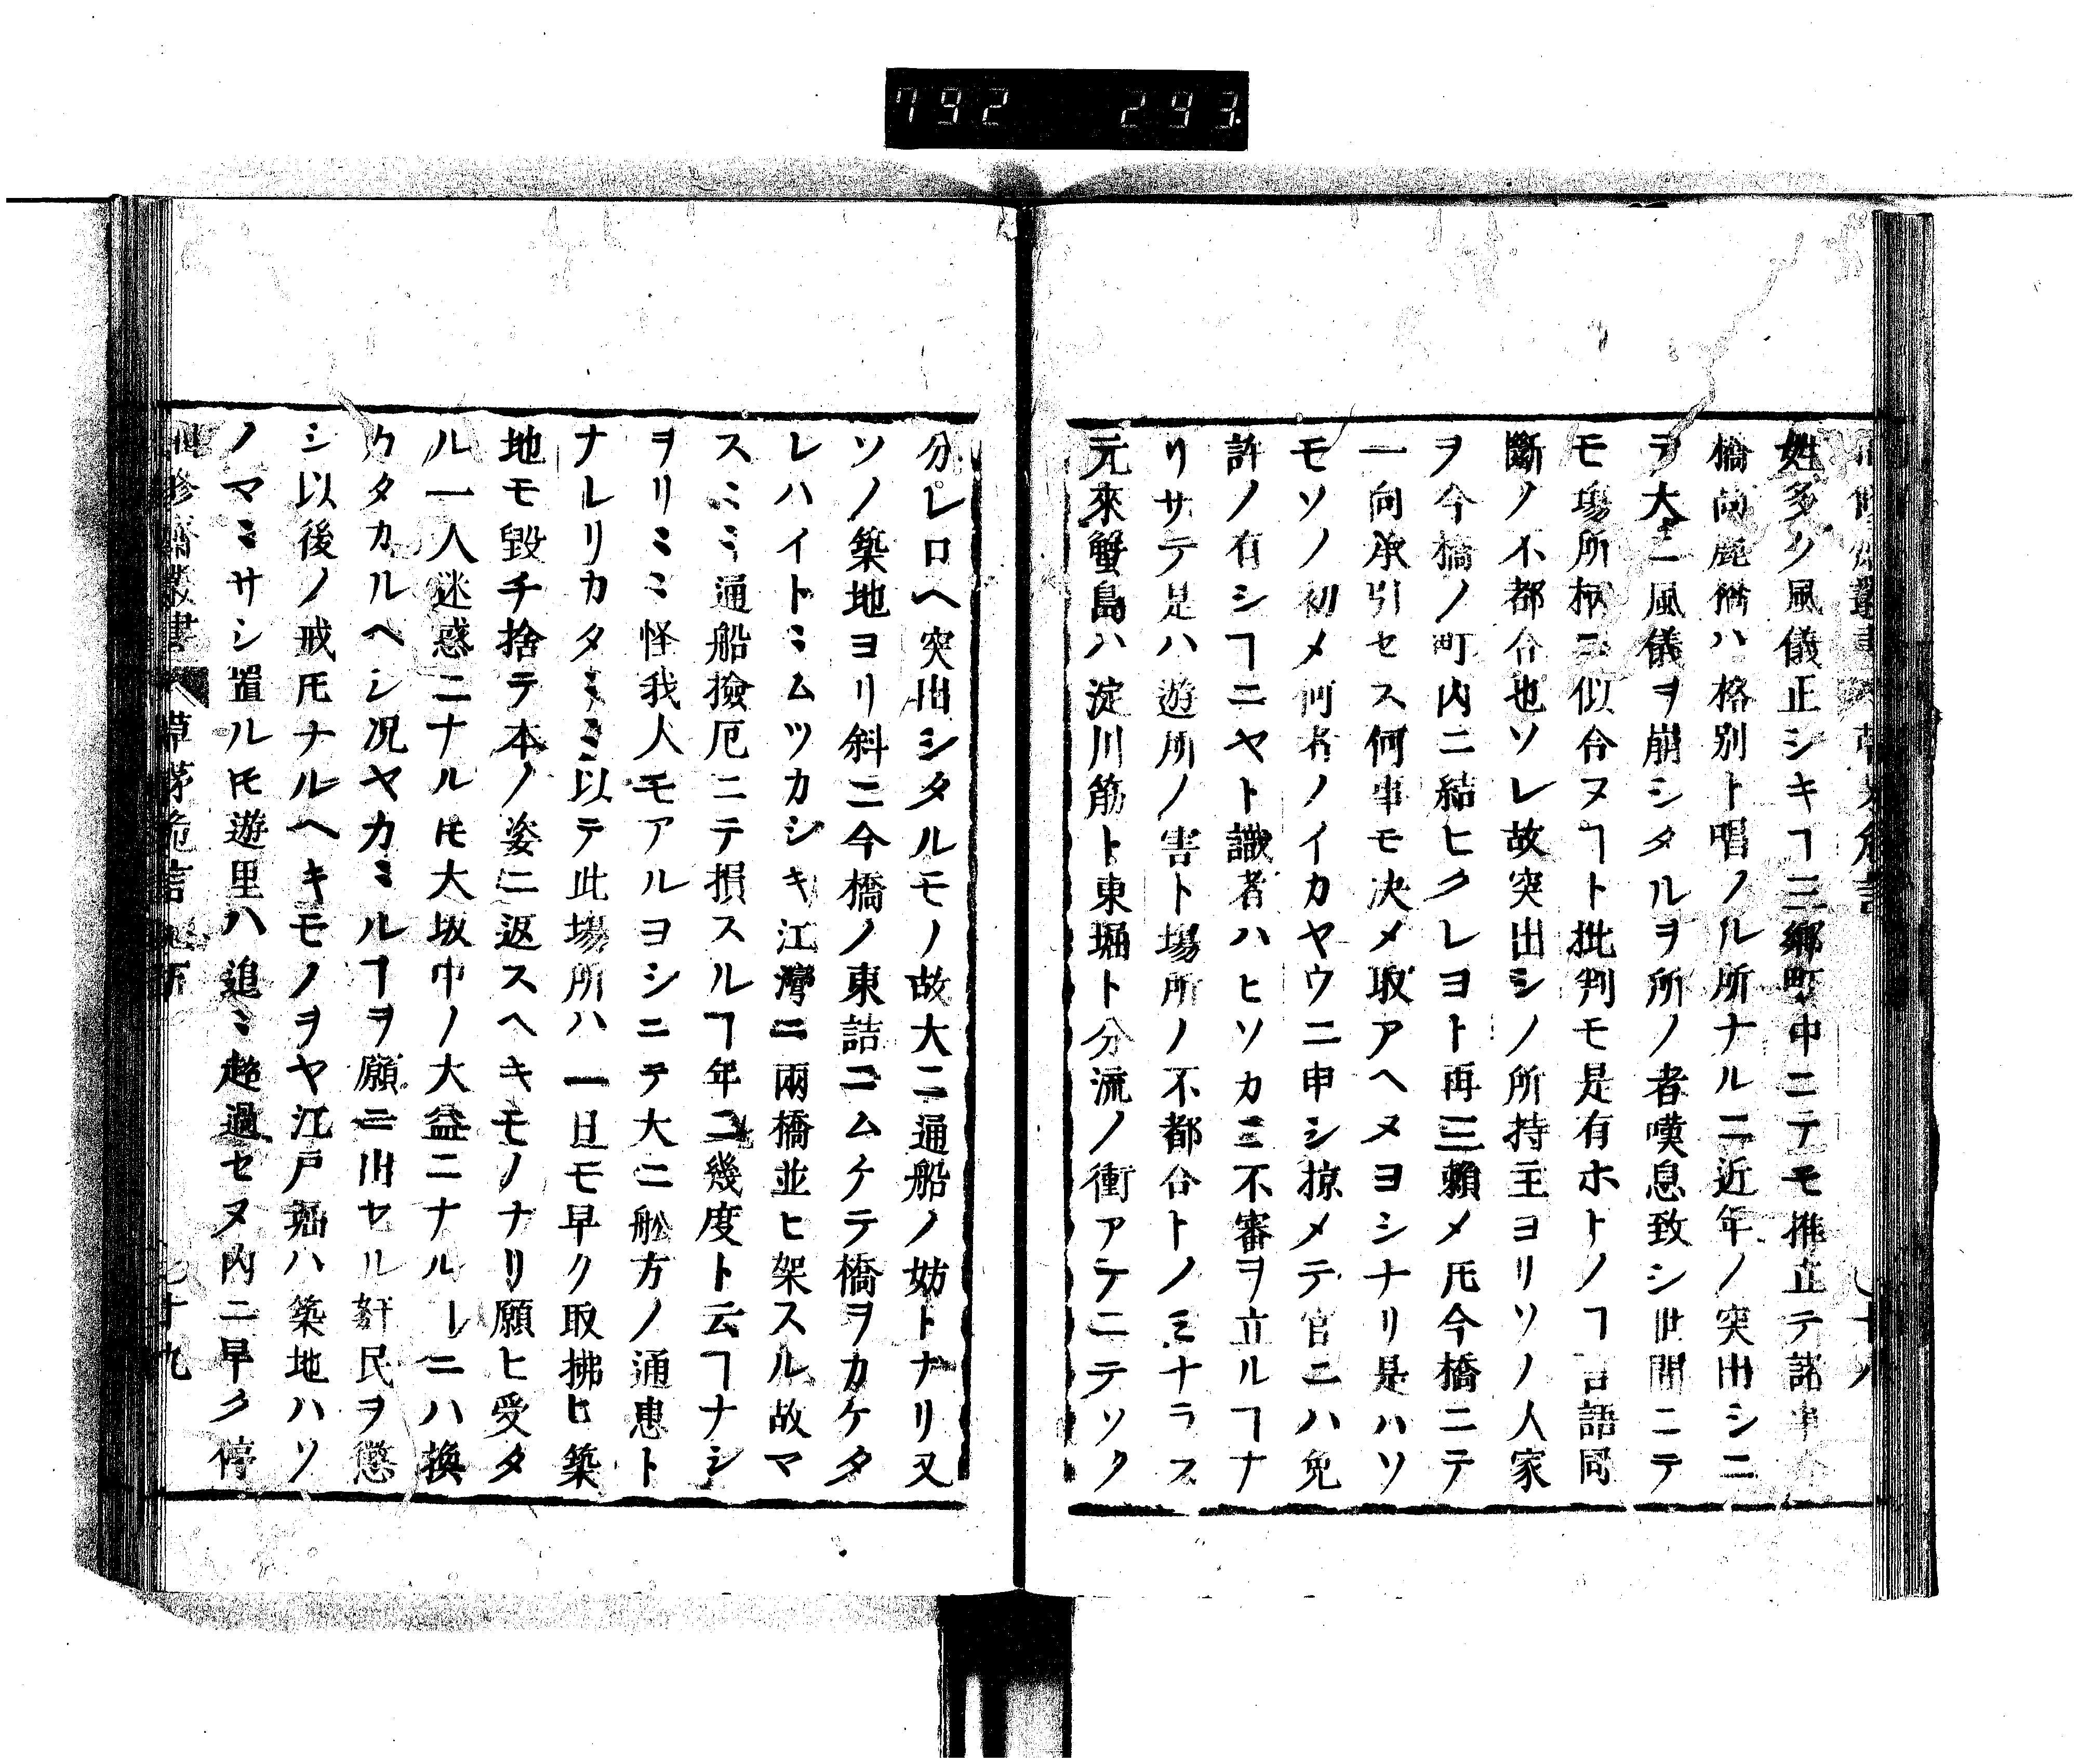 792 293
姓多ク風儀正シキヿ三郷町中ニテモ推立テ諸事今
橋尚麗橋ハ格別ト唱ノル所ナルニ近年ノ突出シニ
テ大ニ風儀ヲ崩シタルヲ所ノ者嘆息致シ世間ニテ
モ塲所柄ニ似合ヌヿト批判モ是有ホトノヿ言語同
斷ノ不都合也ソレ故突出シノ所持主ヨリソノ人家
ヲ今橋ノ町内ニ結ヒクレヨト再三頼メ𪜈今橋ニテ
一向承引セス何事モ决メ取アヘヌヨシナリ是ハソ
モソノ初メ何者ノイカヤウニ申シ掠メテ官ニハ免
許ノ有シヿニヤト識者ハヒソカミ不審ヲ立ルヿナ
リサテ是ハ遊所ノ害ト塲所ノ不都合トノミナラス
元來蟹島ハ淀川筋ト東堀ト分流ノ衝アテニテソク
分レ口ヘ突出シタルモノ故大ニ通船ノ妨トナリ又
ソノ築地ヨリ斜ニ今橋ノ東詰ニムケテ橋ヲカケタ
レハイトミムツカシキ江灣ニ兩橋並ヒ架スル故マ
スミミ通船撿厄ニテ損スルヿ年ニ幾度ト云ヿナシ
ヲリミミ怪我人モアルヨシニテ大ニ舩方ノ通患ト
ナレリカタミミ以テ此塲所ハ一日モ早ク取拂ヒ築
地モ毀チ捨テ本ノ姿ニ返スヘキモノナリ願ヒ受タ
ル一人迷惑ニナル𪜈大坂中ノ大益ニナルーニハ換
カタカルヘシ况ヤカミルヿヲ願ニ出セル奸民ヲ懲
シ以後ノ戒𪜈ナルヘキモノヲヤ江戸堀ハ築地ハソ
ノマミサシ置ル𪜈遊里ハ追ミ超過セヌ内ニ早ク停
草茅危言 七十九